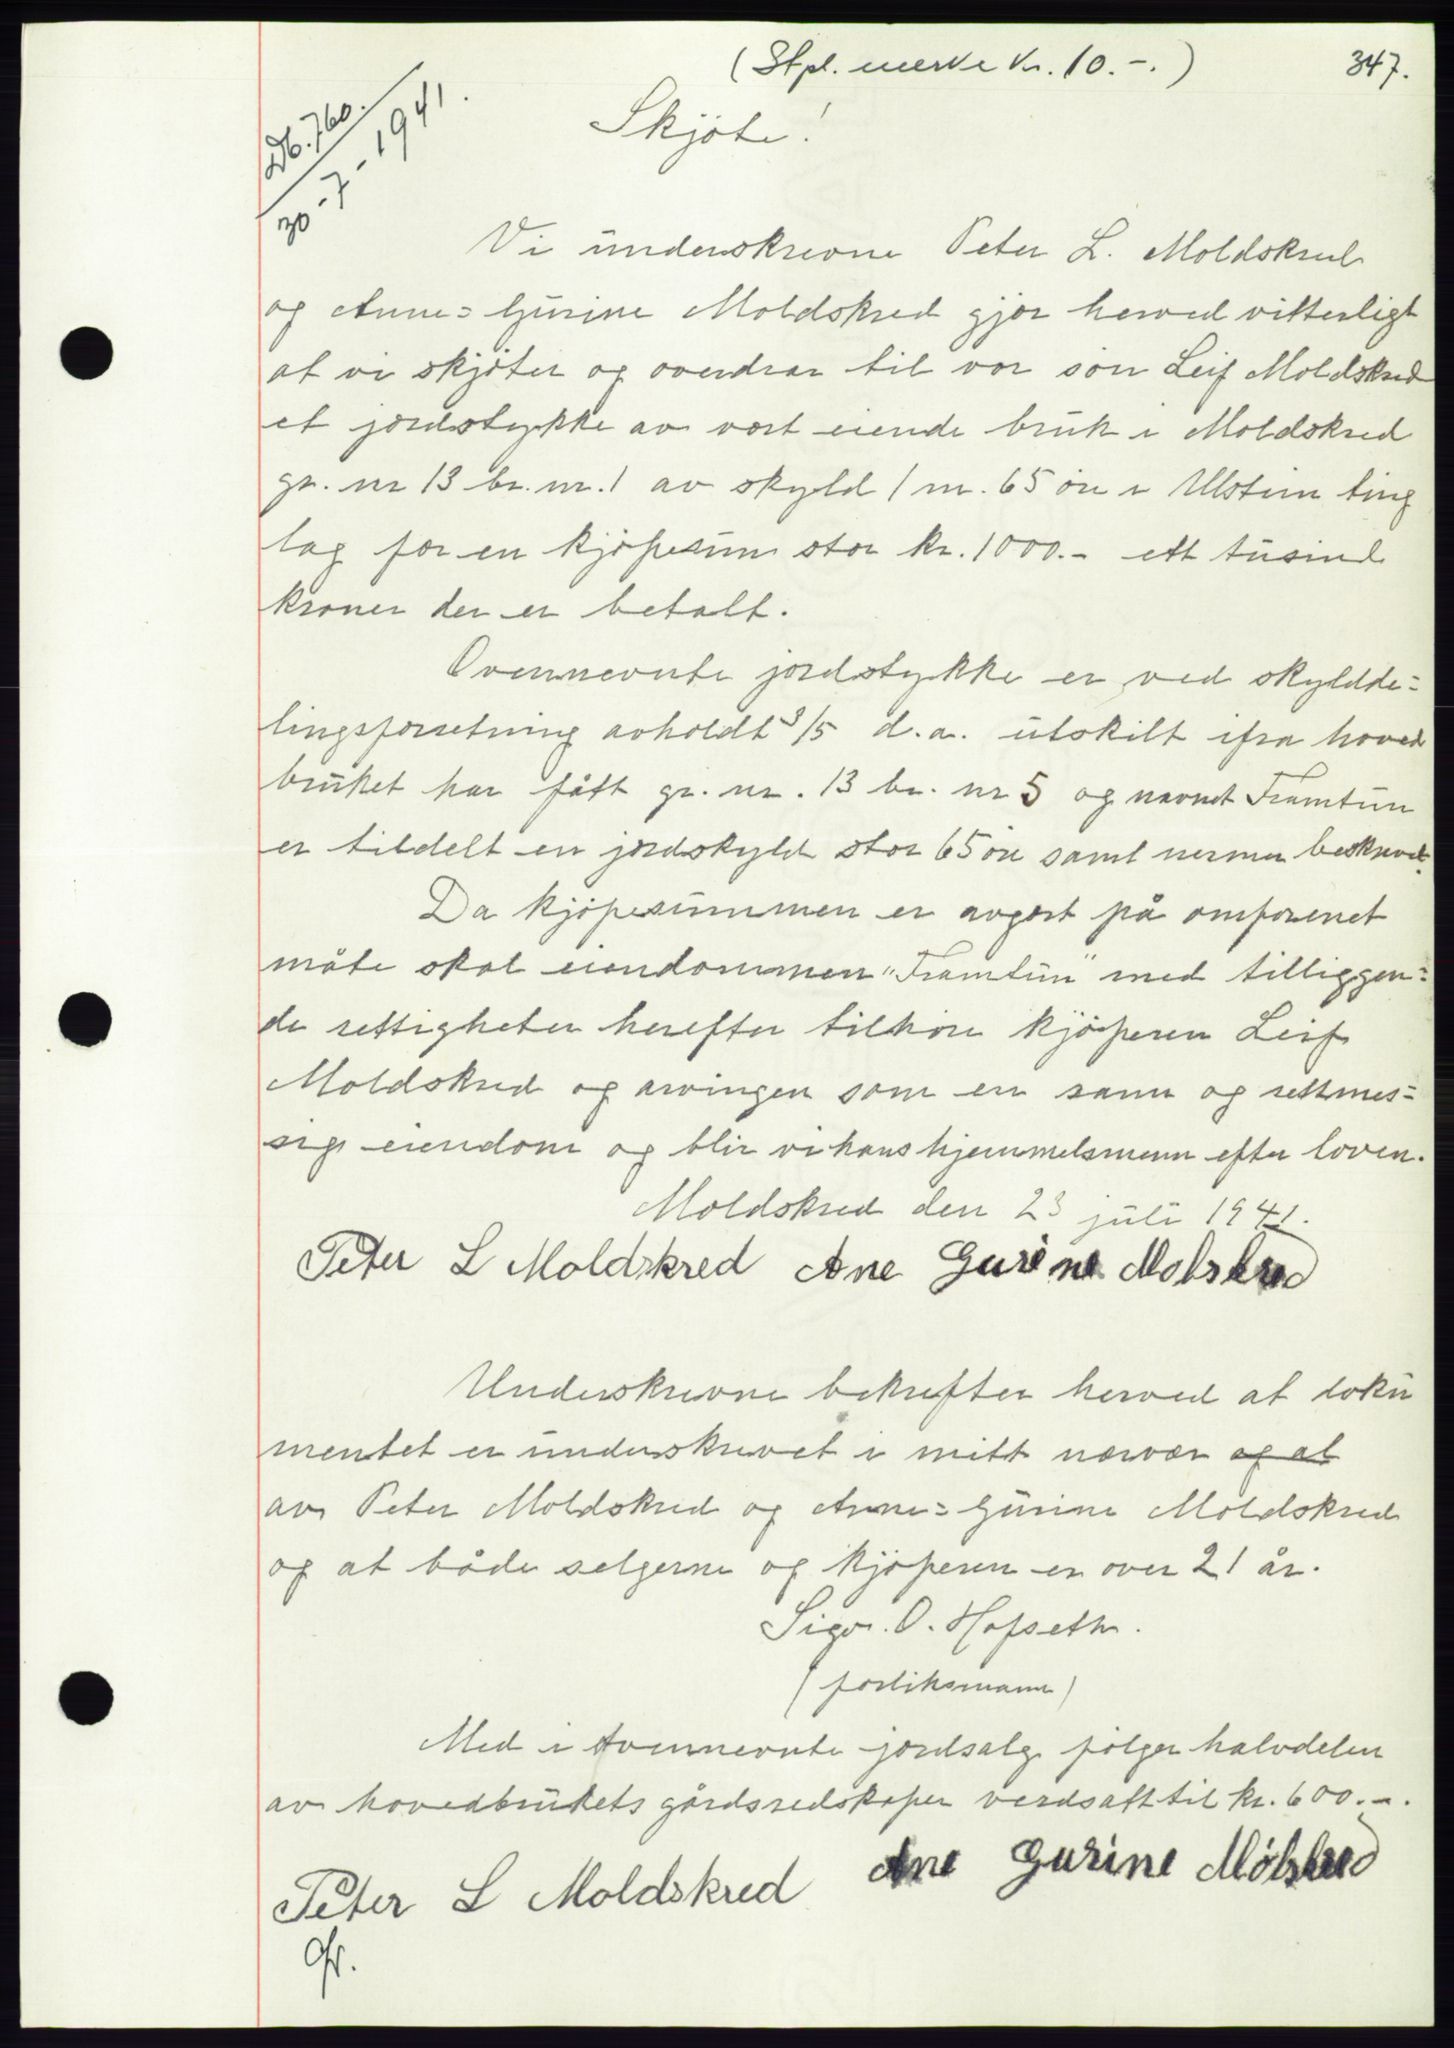 (Stpl. merke kr. 10.-.)
347.
Db. 760.
30-7-1941.
Skjöte!
Vi underskrevne Peter L. Moldskred
og Anne=Gurine Moldskred gjör herved vitterligt
at vi skjöter og overdrar til vor sön Leif Moldskred
et jordstykke av vort eiende bruk i Moldskred
gr. nr 13 br. nr. 1 av skyld 1 m. 65 öre i Ulstein ting
lag for en kjöpesum stor kr. 1000.- ett tusind
kroner der er betalt.
Ovennevnte jordstykke er ved skyldde=
lingsforretning avholdt 3/5 d.a. utskilt ifra hoved
bruket har fått gr. nr. 13 br. nr 5 og navnet Framtun
er tildelt en jordskyld stor 65 öre samt nermer beskrevet.
Da kjöpesummen er avgort på omforenet
måte skal eiendommen "Framtun" med tilliggen=
de rettigheter herefter tilhöre kjöperen Leif
Moldskred og arvinger som en sann og rettmes=
sig eiendom og blir vi hans hjemmelsmenn efter loven.
Moldskred den 23 juli 1941.
Peter L Moldskred Ane Gurine Molskred
Underskrevne bekrefter herved at doku
mentet er underskrevet i mitt nærvær og at
av Peter Moldskred og Anne=Gurine Moldskred
og at både selgerne og kjöperen er over 21 år.
Sigv. O. Hofseth.
(forliksmann)
Med i ovennevnte jordsalg fölger halvdelen
av hovedbrukets gårdsredskaper verdsatt til kr. 600.-.
Peter L Moldskred Ane Gurine Mölskred